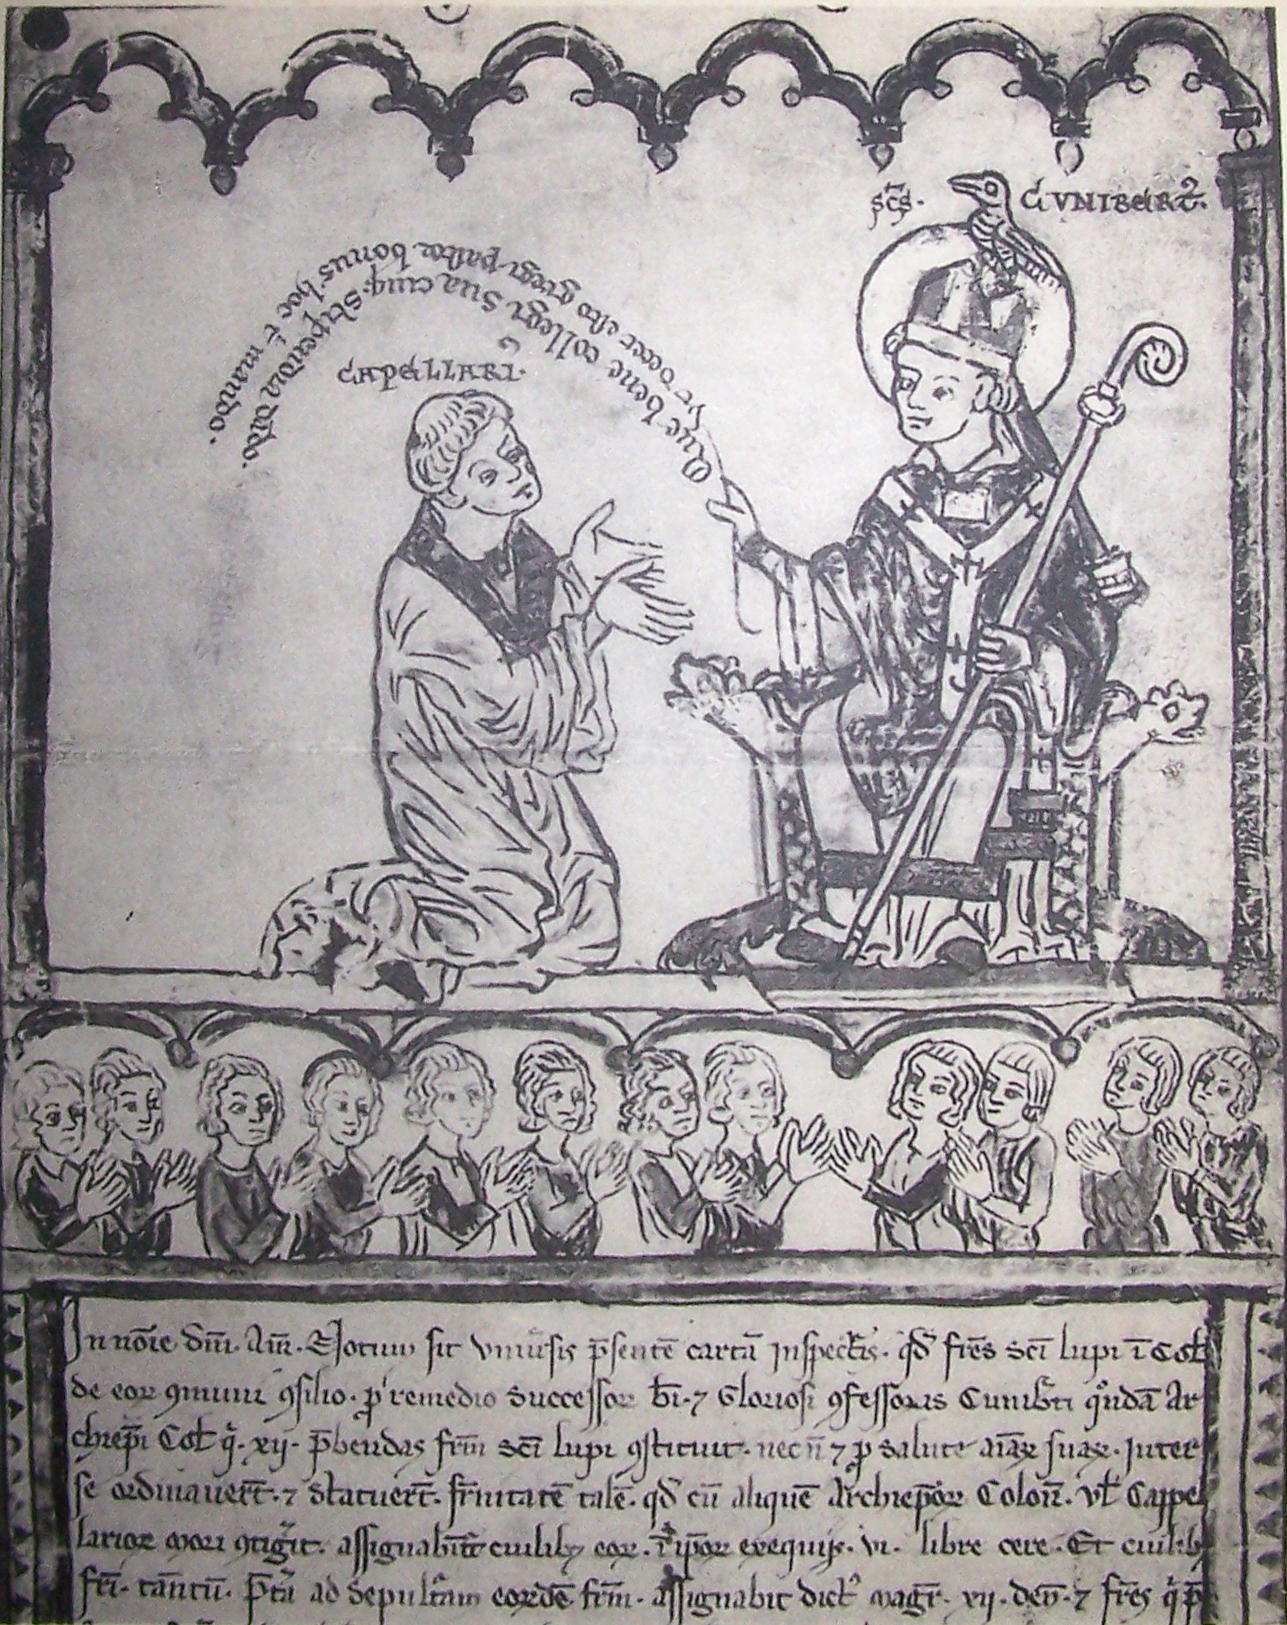 sc̄s. CVNIBERT᷒.
CAPELLARI.
Que bene collegi Sua cuiq; Stipendia dīdo.
Vt decet esto gregi pastor bonus. hoc t̄ mando.
In nōie dn̄i. Am̄. Notum sit vniūsis p̄sentē cartā inspectis. qd̄ fr̄es sc̄i lupi ī Col̄
de eoꝝ ꝯmuni ꝯsilio. ꝓ remedio successoꝝ bī. ⁊ Gloriosi ꝯfessoris Cunib̄ti qͦndā Ar
chiep̄i Col̄. q̄. xij. p̄bendas fr̄m sc̄i lupi ꝯstituit. nec n̄ ⁊ ꝓ salute aīaꝝ suaꝝ. Inter
se ordinauer̄t. ⁊ statuer̄t. fr̄nitatē talē. qd̄ cū aliquē Archiep̄oꝝ Colon̄. vl̄ Cappel
larioꝝ mori ꝯtiḡit. assignabūt cuilibꝫ eoꝝ. ī ip̄oꝝ exequijs. vi. libre cere. Et cuilibꝫ
fr̄i. tantū. P̄tā ad sepult̄am eoꝝdē fr̄m. assignabit dict᷒ magr̄. xij. den̄. ⁊ fr̄es q̄